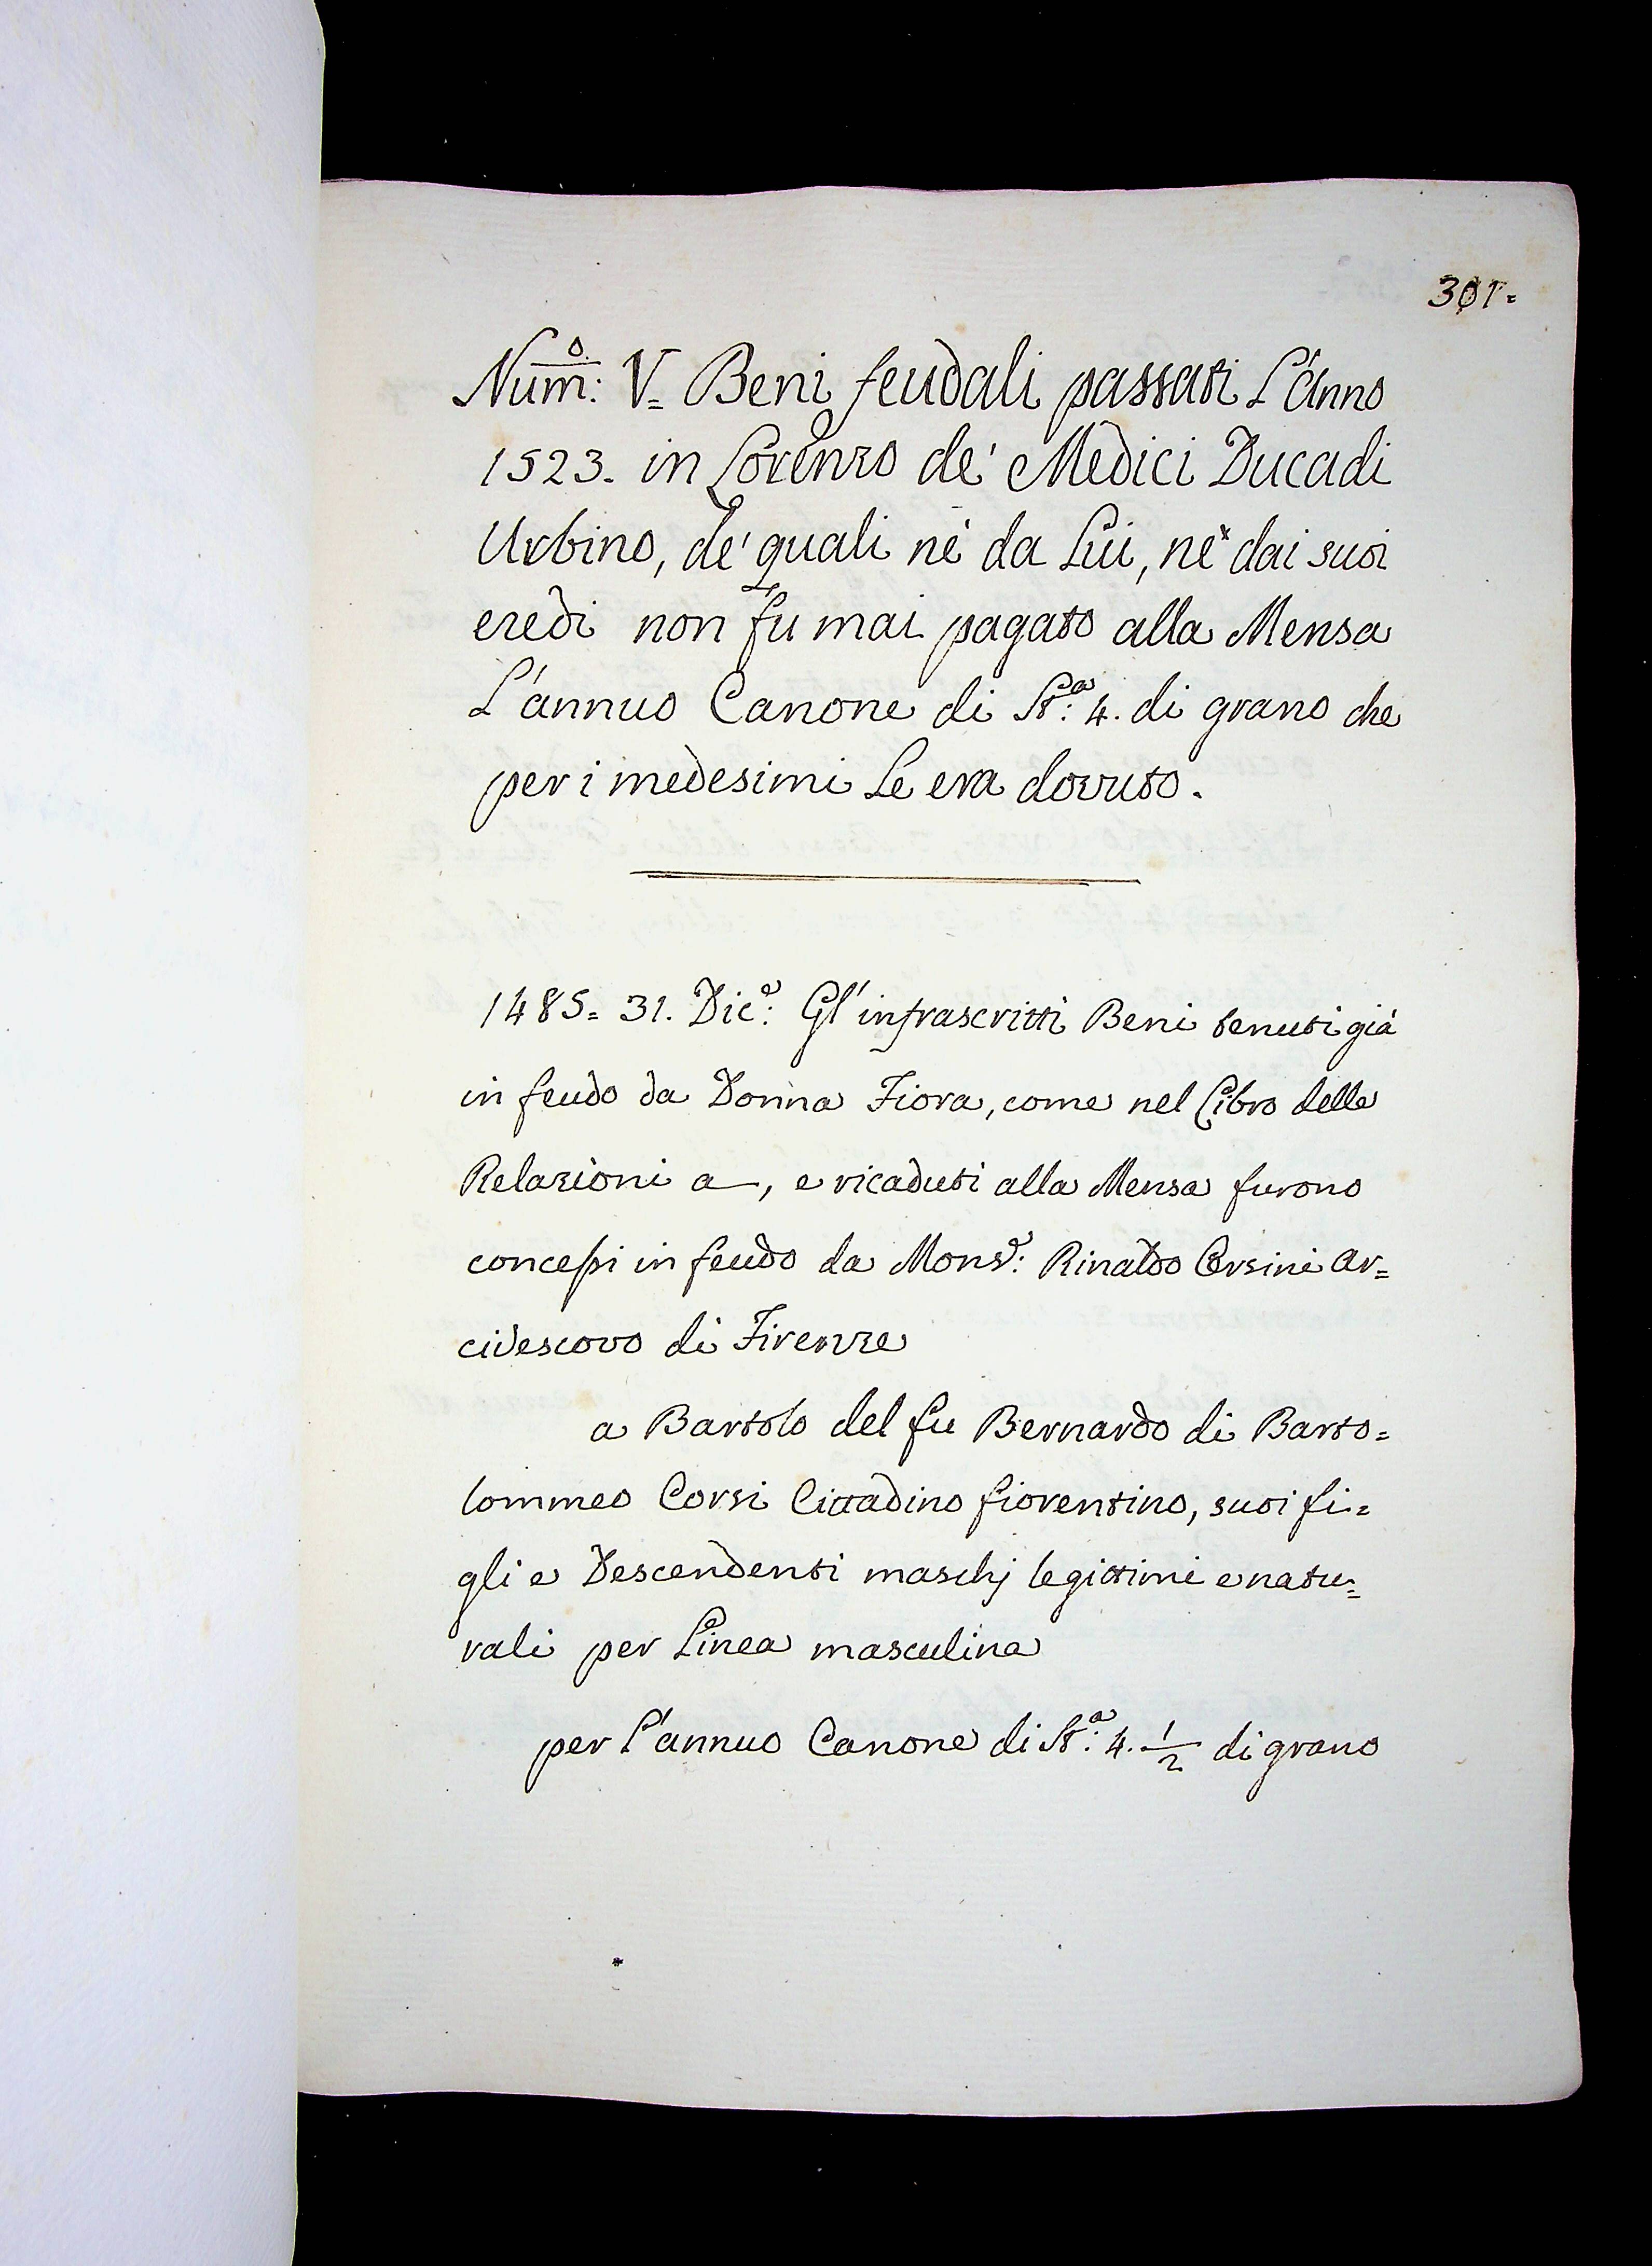 301=
Num:o V= Beni feudali passati L'anno
1523. in Lorenzo de' Medici Ducadi
Urbino, de' quali nè da Lui, nè dai suoi
eredi non fu mai pagato alla Mensa
L'annuo Canone di St:a 4. di grano che
per i medesimi Le era dovuto.
1485= 31. Dic:e Gl' infrascritti Beni tenuti già
in feudo da Donna Fiora, come nel Libro delle
Relazioni a—, e ricaduti alla Mensa furono
concessi in feudo da Mons:r Rinaldo Orsini Ar=
civescovo di Firenze
a Bartolo del fu Bernardo di Barto=
lommeo Corsi Cittadino fiorentino, suoi fi=
gli e Descendenti maschj legittimi e natu=
rali per Linea masculina
per L'annuo Canone di St:a 4. 1/2 di grano